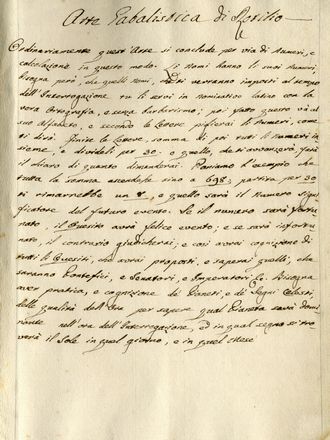 Arte Cabalistica di Rosilio
Ordinariamente quest'Arte si conclude per via di Numeri, e
calcolazione in questo modo. Li Nomi hanno li suoi Numeri
bisogna però, che quelli Nomi, che ti verranno imposti al tempo
dell'Interrogazione tu li scrivi in nominativo latino con la
vera Ortografia, e senza barbarismo; poi fatto questo và al
suo Alfabeto, e secondo le Lettere piglierai li Numeri, come
ti dirò. Finite le Lettere somma di poi tutti li numeri in
sieme, e dividili per 30, e quello, che ti avvanzerà sarà
il chiaro di quanto dimanderai. Poniamo l'esempio che
tutta la somma ascendesse sino a 698, partita per 30
ti rimarrebbe un 8, e quello sarà il Numero signi
ficatore del futuro evento. Se il numero sarà fortu
nato, il Quesito avrà felice evento; e se sarà infortu
nato, il contrario giudicherai; e così avrai cognizione di
tutti li Quesiti, che avrai proposti, e saperai quelli, che
saranno Pontefici, e Senatori, e Imperatori Bisogna
aver pratica, e cognizione de Pianeti, e de Segni Celesti,
delle qualità dell'Ora per sapere qual Pianeta sarà domi
nante nell'ora dell'Interrogazione, ed in qual segno si tro
verà il Sole in qual giorno, e in quel Mese